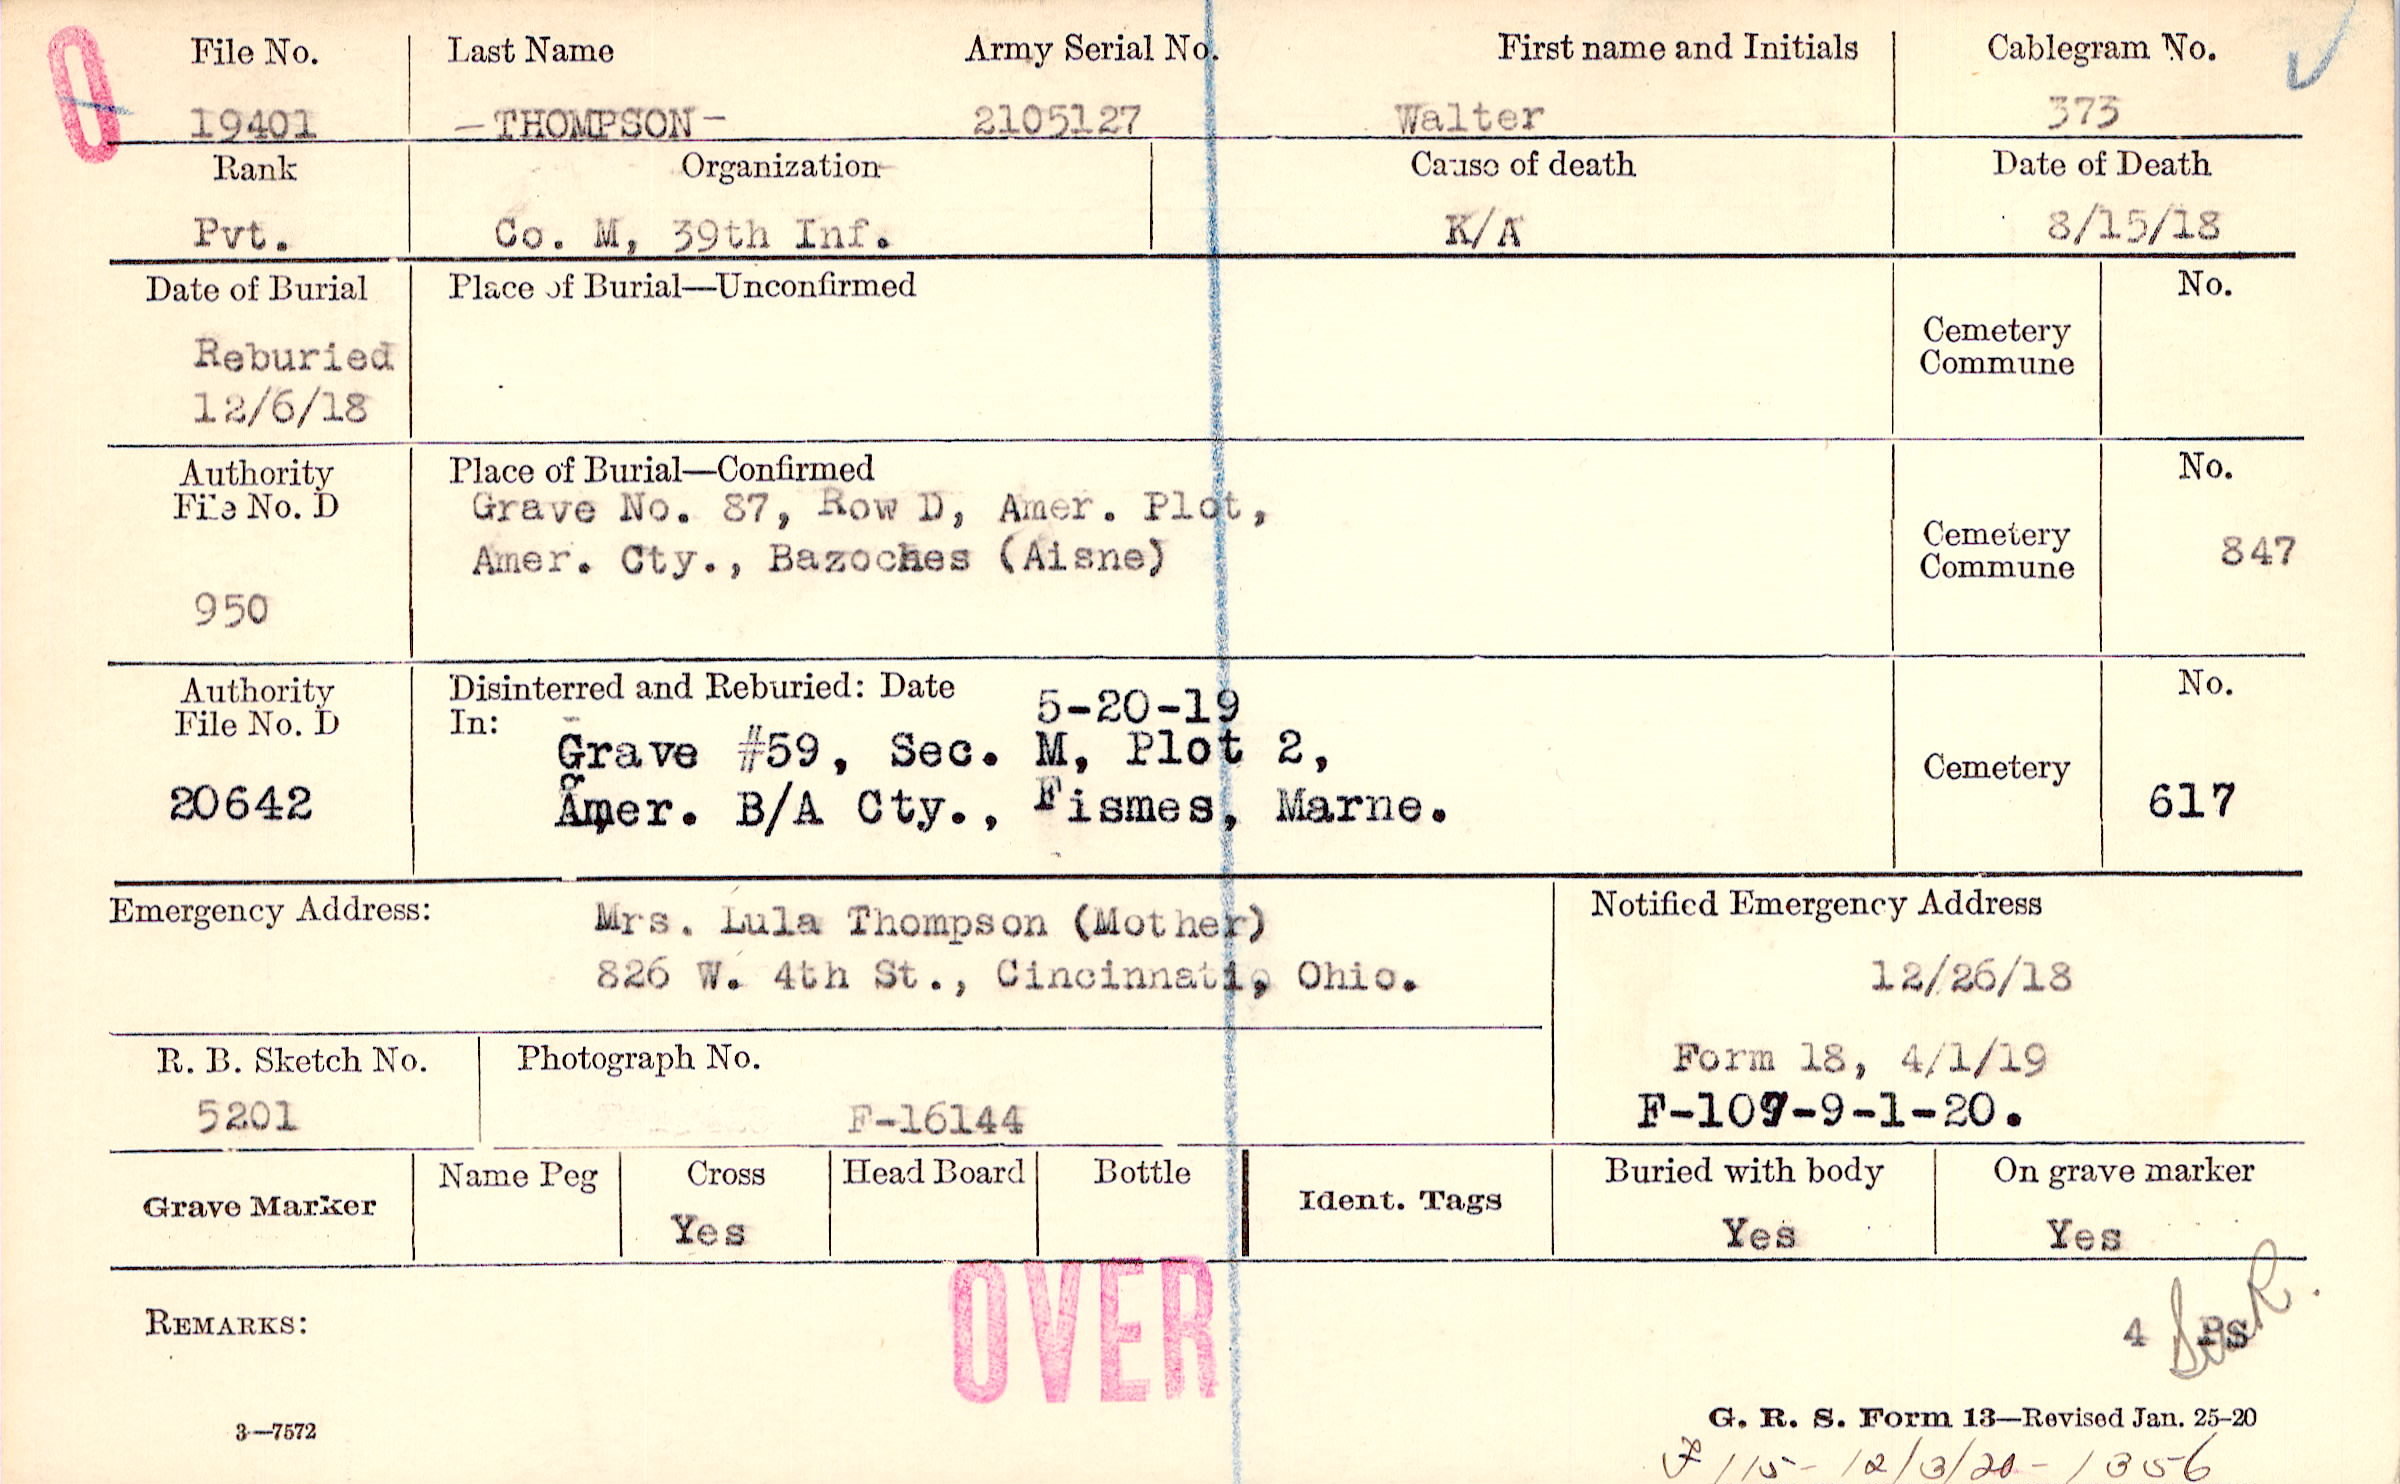 O
File No. Last Name Army Serial No. First name and Initials Cablegram No.
19401 -THOMPSON- 2105127 Walter 373
Rank Organization Cause of death Date of Death
Pvt. Co. M, 39th Inf. K/A 8/15/18
Date of Burial Place of Burial—Unconfirmed No.
Cemetery
Commune
Reburied
12/6/18
Authority Place of Burial—Confirmed No.
File No. D Grave No. 87, Row D, Amer. Plot,
Amer. Cty., Bazoches (Aisne)
Cemetery
Commune 847
950
Authority Disinterred and Reburied: Date 5-20-19 No.
File No. D In:
Grave #59, Sec. M, Plot 2,
Cemetery
20642 Amer. B/A Cty., Fismes, Marne. 617
Emergency Address: Mrs. Lula Thompson (Mother) Notified Emergency Address
826 W. 4th St., Cincinnati, Ohio. 12/26/18
R. B. Sketch No. Photograph No. Form 18, 4/1/19
5201 F-16144 F-109-9-1-20.
Grave Marker Name Peg Cross Head Board Bottle Ident. Tags Buried with body On grave marker
Yes Yes Yes
OVER
REMARKS:
4
3—7572 G. R. S. Form 13—Revised Jan. 25-20
115- 12/3/20- 1356